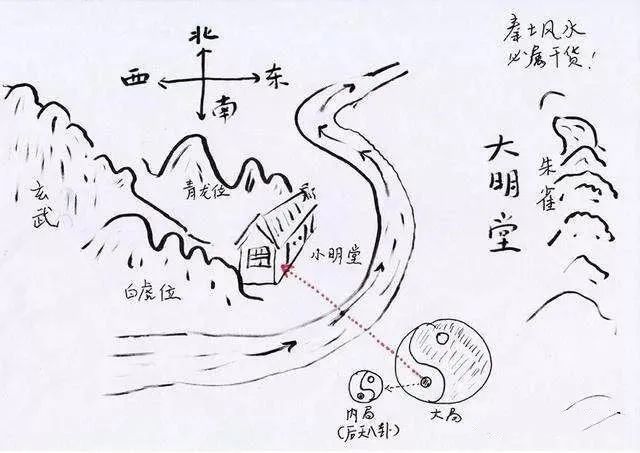 秦士风水
必属干货！
北
西
东
南
玄武
青龙位
白虎位
小明堂
大明堂
朱雀
内局
（后天八卦）
大局